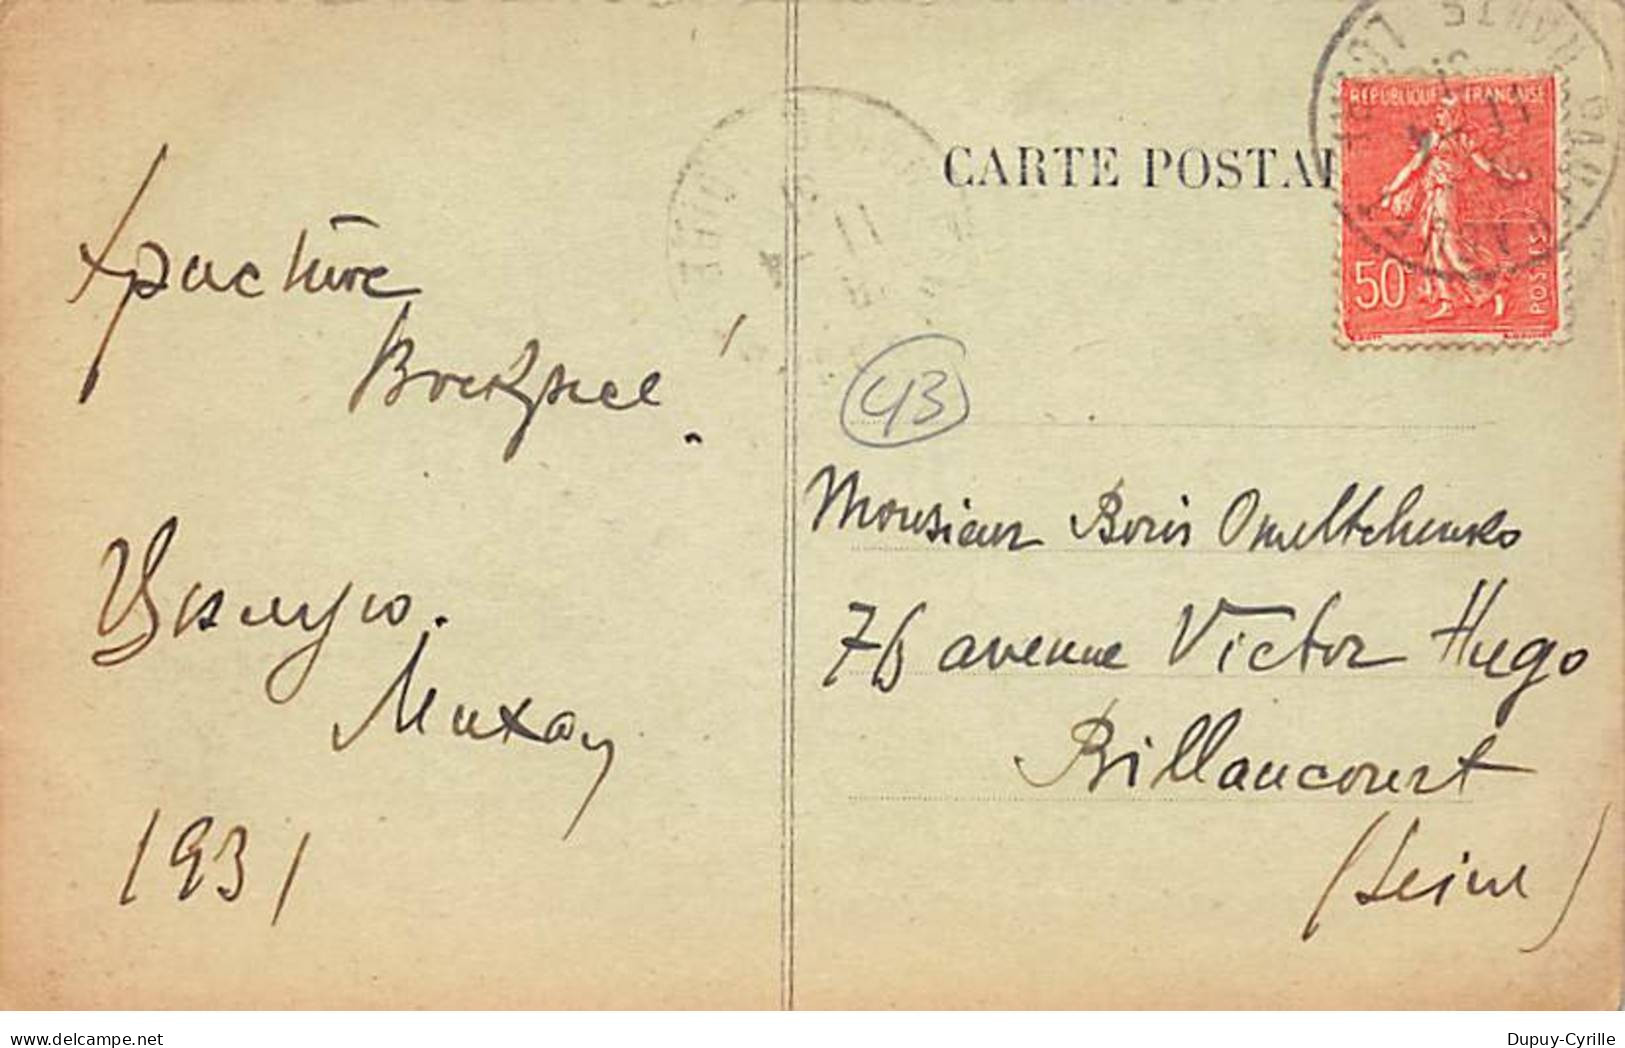 Христос
Воскресе!
Целую.
Михаил
1931
CARTE POSTAL
REPUBLIQUE FRANÇAISE
50c
POSTES
43
Monsieur Boris Omeltchenko
76 avenue Victor Hugo
Billancourt
(Seine)
delcampe.net
Dupuy-Cyrille